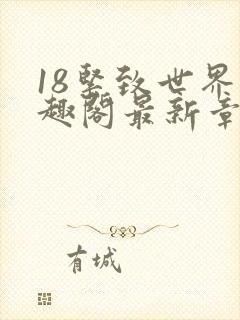 18竖致世界
趣阁最新章
有城